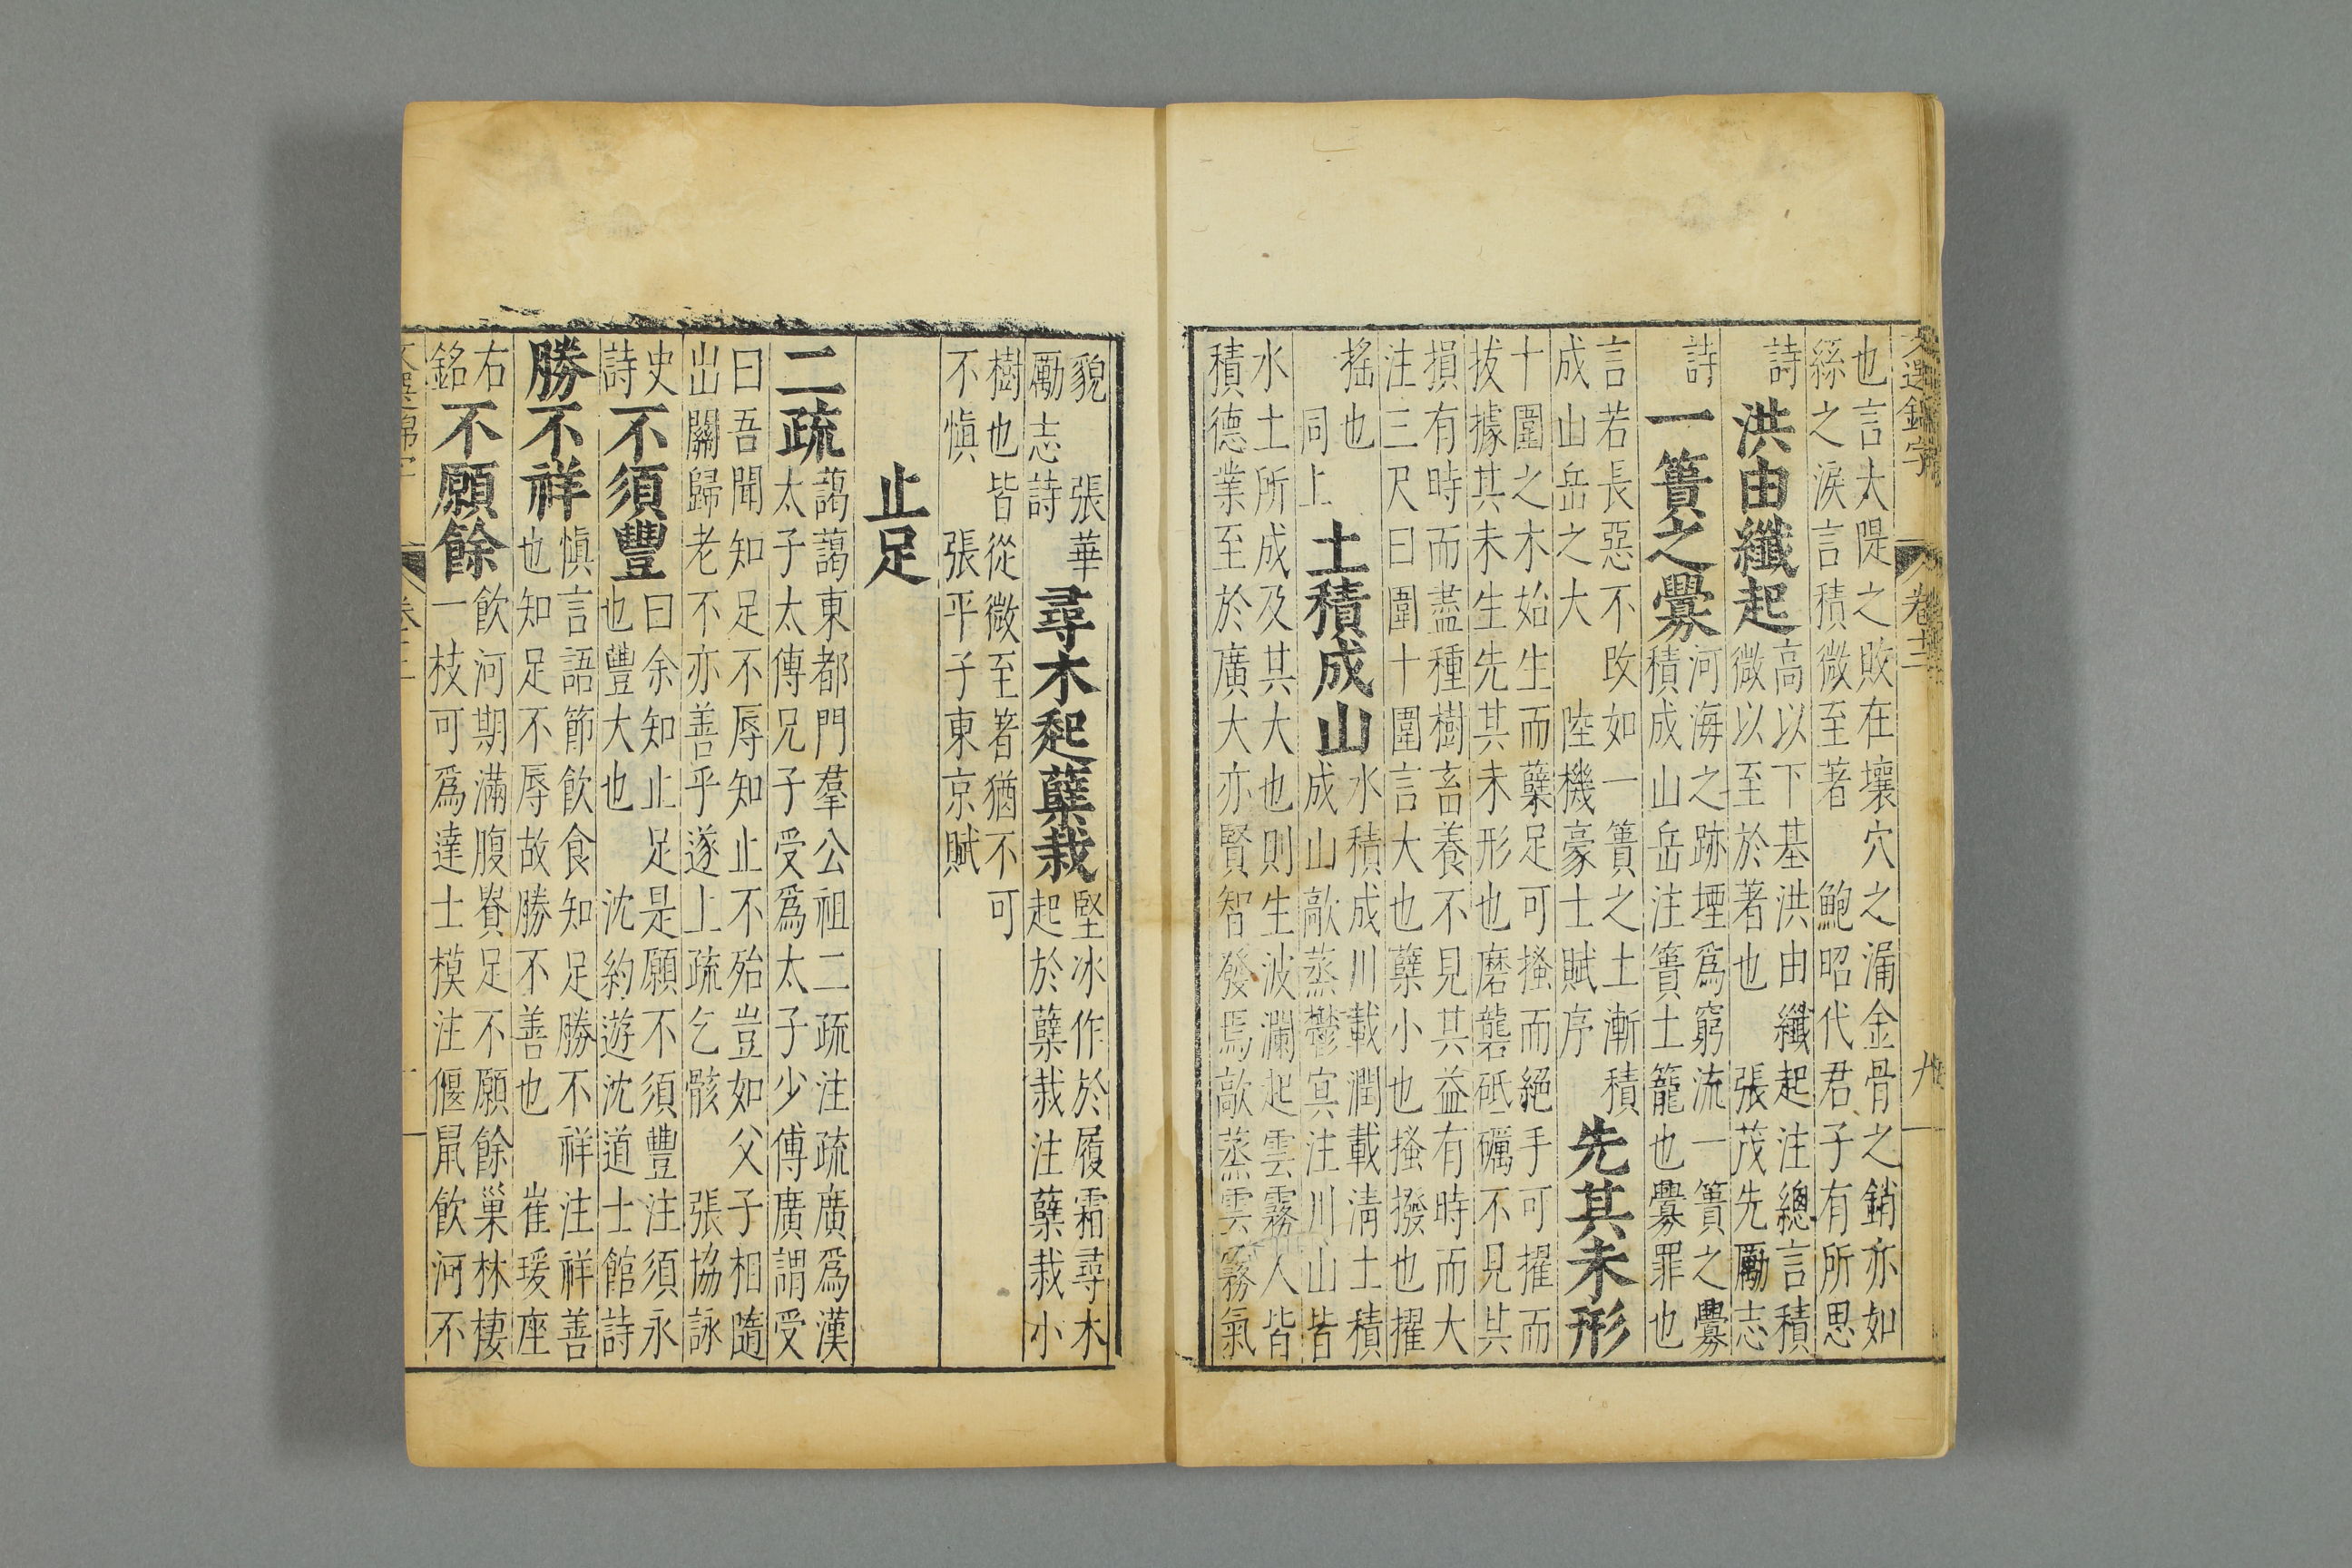 文選錦字 卷十二 九
也言太隄之敗在壤穴之漏金骨之銷亦如
絲之淚言積微至著 鮑昭代君子有所思
詩
洪由纖起
高以下基洪由纖起注總言積
微以至於著也 張茂先勵志
詩
一簣之釁
河海之跡堙爲窮流一簣之釁
積成山岳注簣土籠也釁罪也
言若長惡不改如一簣之土漸積
成山岳之大 陸機豪士賦序
先其未形
十圍之木始生而蘖足可搔而絕手可擢而
拔據其未生先其未形也磨礱砥礪不見其
損有時而盡種樹畜養不見其益有時而大
注三尺曰圍十圍言大也蘖小也搔撥也擢
搖也
同上
土積成山
水積成川載潤載清土積
成山歊蒸鬱冥注川山皆
水土所成及其大也則生波瀾起雲霧人皆
積德業至於廣大亦賢智發焉歊蒸雲霧氣
貌 張華
勵志詩
尋木起蘖栽
堅冰作於履霜尋木
起於蘖栽注蘖栽小
樹也皆從微至著猶不可
不慎 張平子東京賦
止足
二疏
藹藹東都門羣公祖二疏注疏廣爲漢
太子太傅兄子受爲太子少傅廣謂受
曰吾聞知足不辱知止不殆豈如父子相隨
出關歸老不亦善乎遂上疏乞骸 張協詠
史
詩
不須豐
曰余知止足是願不須豐注須永
也豐大也 沈約遊沈道士館詩
勝不祥
慎言語節飲食知足勝不祥注祥善
也知足不辱故勝不善也 崔瑗座
右
銘
不願餘
飲河期滿腹貴足不願餘巢林棲
一枝可爲達士模注偃鼠飲河不